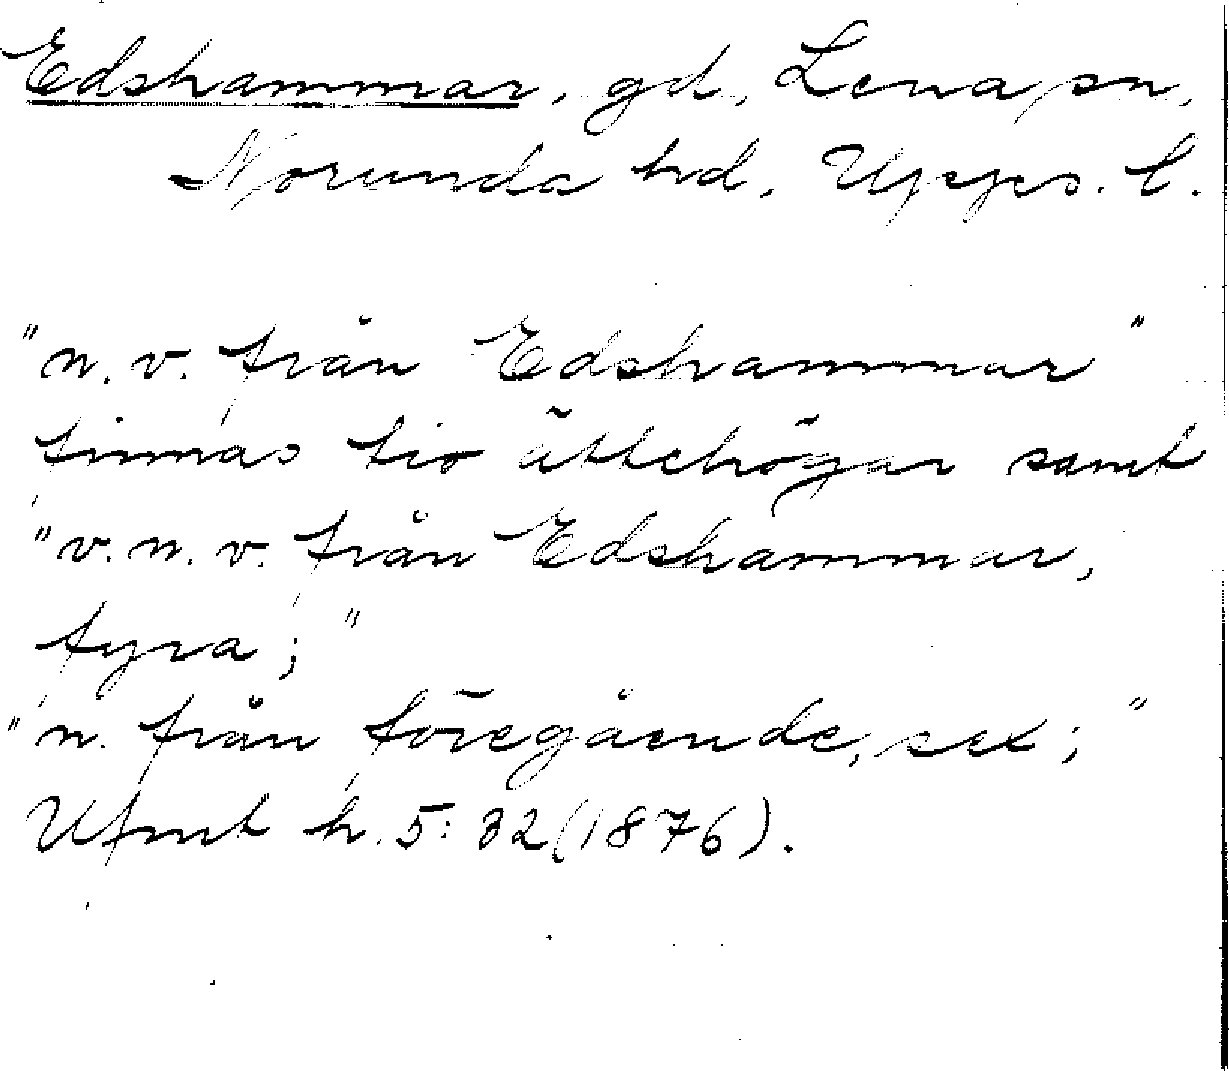 Edshammar, gd, Lena sn,
Norunda hd, Upps. l.
"n. v. från Edshammar"
finnas tio ättehögar samt
"v. n. v. från Edshammar,
fyra;"
"n. från föregående, sex;"
Ufmt h. 5: 32 (1876).